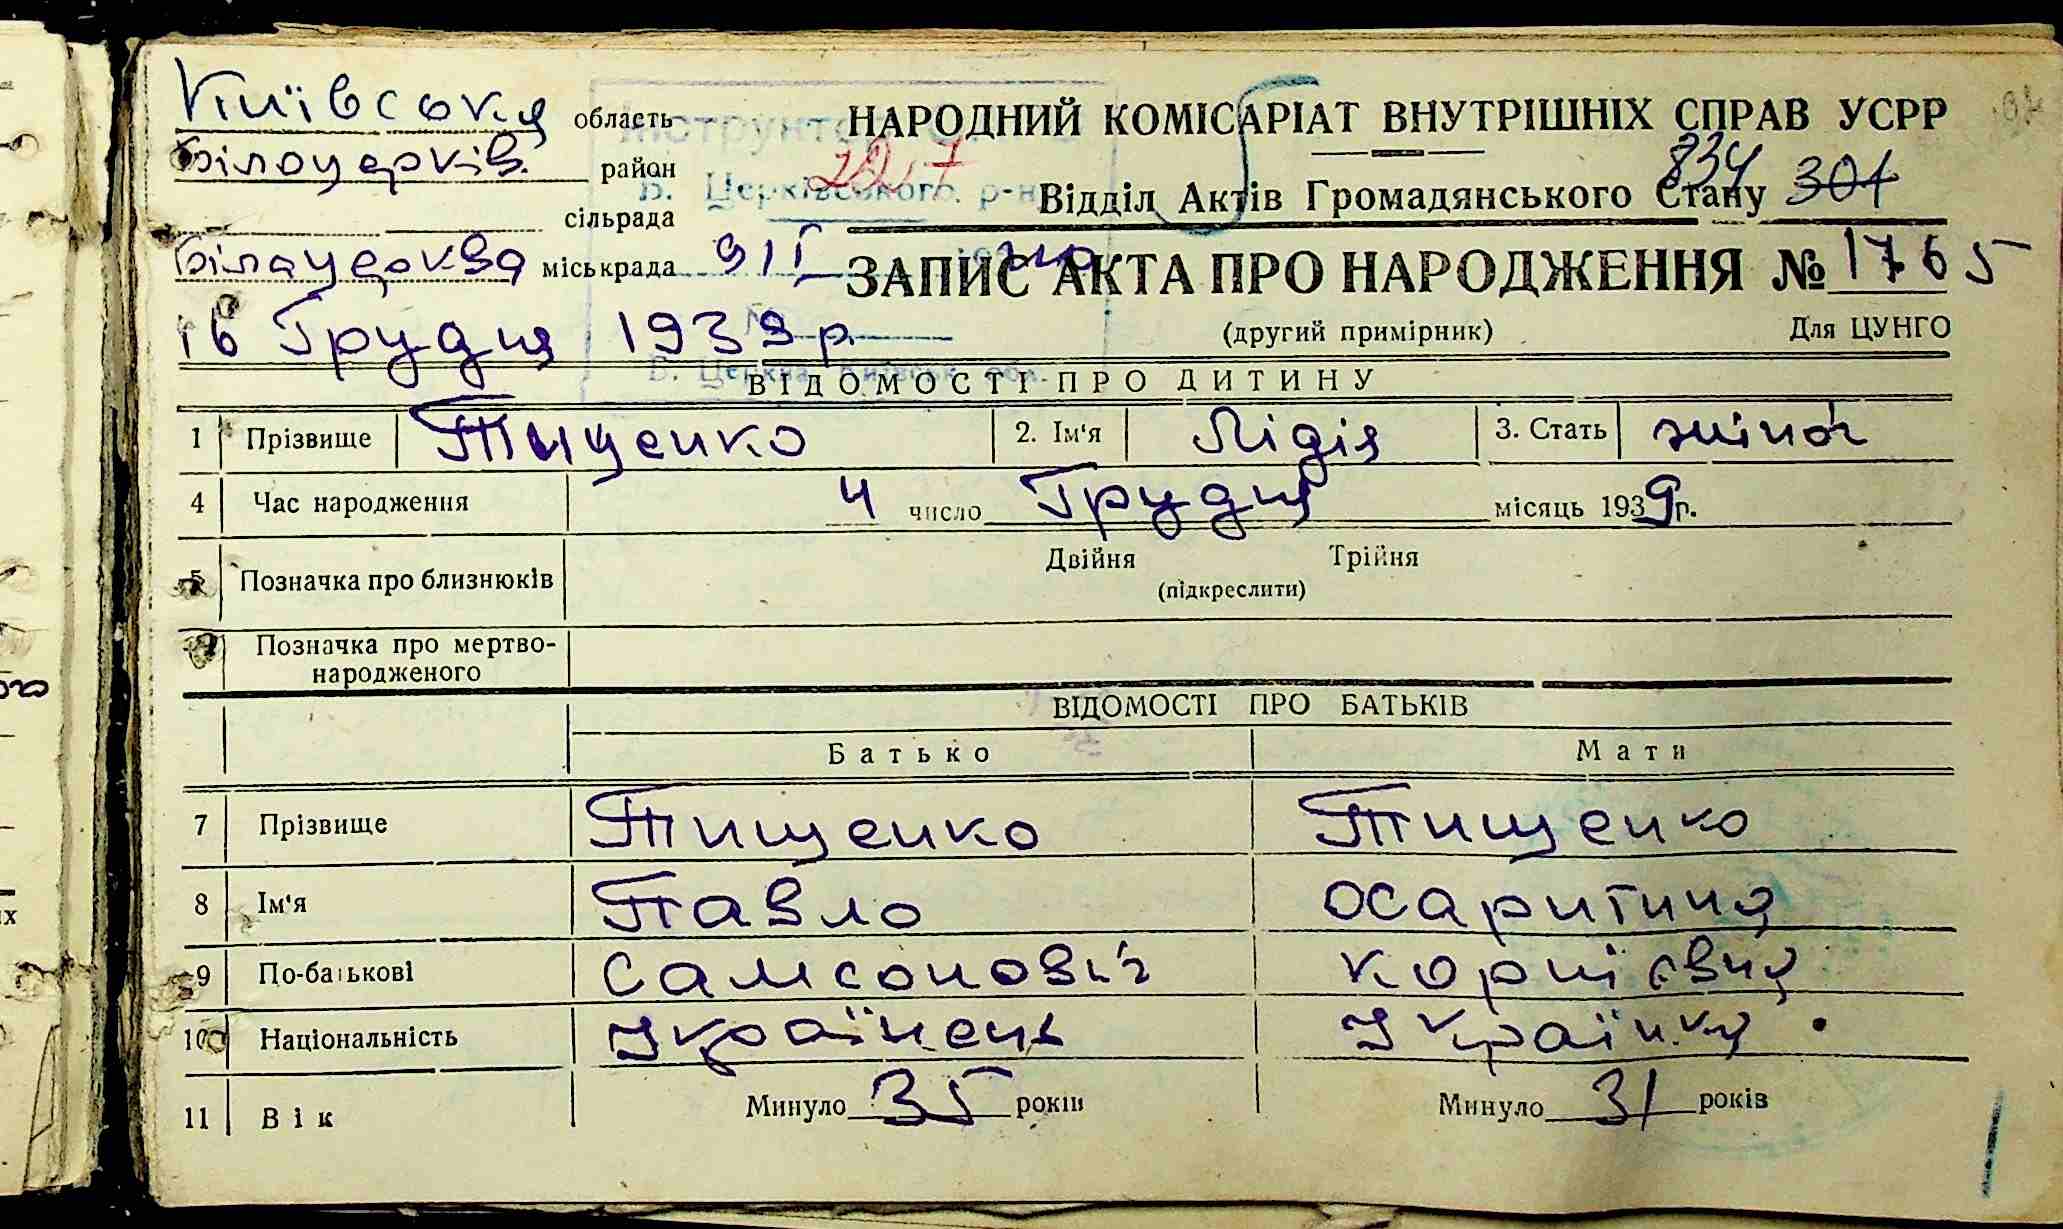 Київська область НАРОДНИЙ КОМІСАРІАТ ВНУТРІШНІХ СПРАВ УСРР
Білоцерків. район 834
Відділ Актів Громадянського Стану 301
сільрада
Білацерква міськрада ЗАПИС АКТА ПРО НАРОДЖЕННЯ № 1765
16 Грудня 1939 р. (другий примірник) Для ЦУНГО
Б. Церківського р-н
ВІДОМОСТІ ПРО ДИТИНУ
1 Прізвище Тищенко 2. Ім'я Лідія 3. Стать жіноч
4 Час народження 4 число Грудня місяць 1939 р.
5 Позначка про близнюків Двійня Трійня
(підкреслити)
Позначка про мертво-
народженого
ВІДОМОСТІ ПРО БАТЬКІВ
Батько Мати
7 Прізвище Тищенко Тищенко
8 Ім'я Павло
9 По-батькові Самсонович Корнієвна
10 Національність Українець Українка
11 Вік Минуло 35 років Минуло 31 років